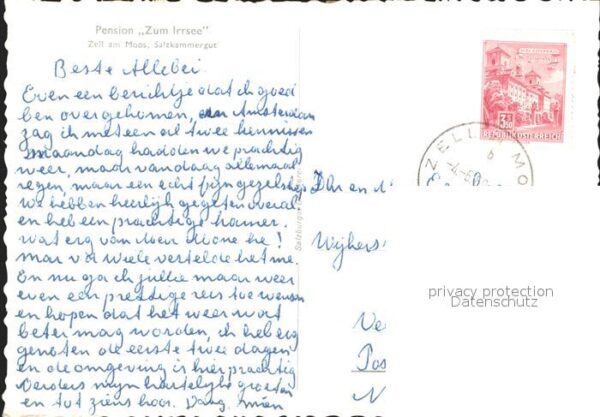 Pension „Zum Irrsee"
Zell am Moos, Salzkammergut
Beste Allebei.
Even een berichtje dat ik goed
ben overgekomen, Amsterdam
zag ik meteen al twee kennissen
Maandag hadden we prachtig
weer, maar vandaag allemaal
regen, maar een echt fijn gezelschap
We hebben heerlijk gegeten overal
en heb een prachtige kamer.
wat erg van he!
mar v.d Wiele vertelde het me.
En nu ga ik jullie maar weer
even een prettige reis toe wensen
en hopen dat het weer wat
beter mag worden, ik heb erg
genoten de eerste twee dagen
en de omgeving is hier prachtig
Verders mijn hartelijke groeten
en tot ziens hoor. Dag. Mien
3.50
REPUBLIK ÖSTERREICH
ZELL A MO
Dhr en
Wijhers
privacy protection
Datenschutz
Ve
Pos
N